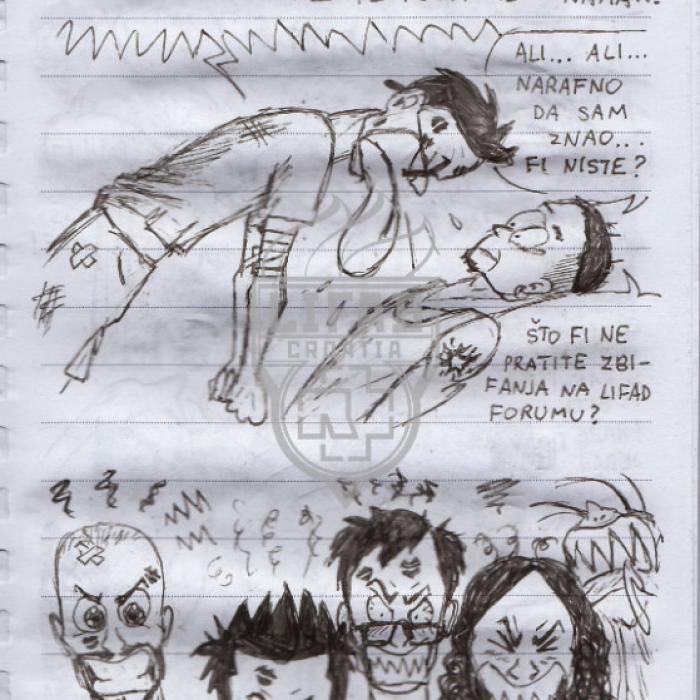 ALI... ALI...
NARAFNO
DA SAM
ZNAO...
FI NISTE?
ŠTO FI NE
PRATITE ZBI-
FANJA NA LIFAD
FORUMU?
LIFAD
CROATIA